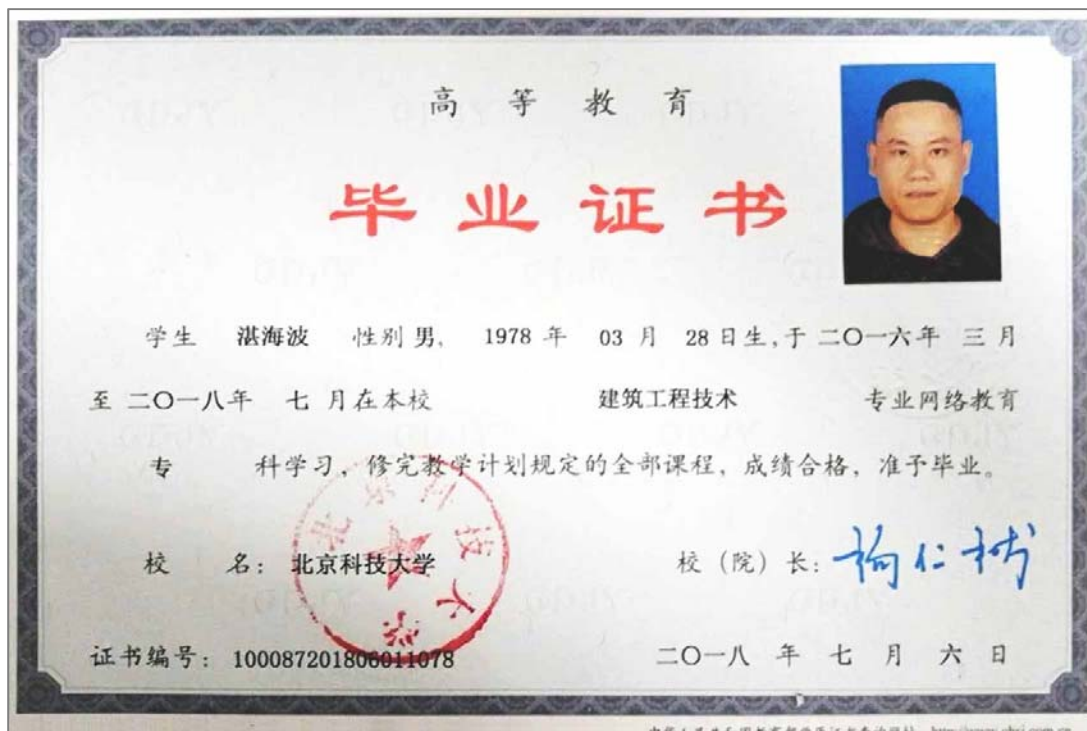 高等教育
毕业证书
学生 湛海波 性别 男, 1978 年 03 月 28 日生, 于 二〇一六年 三 月
至 二〇一八年 七 月在本校 建筑工程技术 专业网络教育
专 科学习, 修完教学计划规定的全部课程, 成绩合格, 准予毕业。
校 名: 北京科技大学 校(院)长: 杨仁树
北京科技大学
证书编号: 100087201806011078 二〇一八 年 七 月 六 日